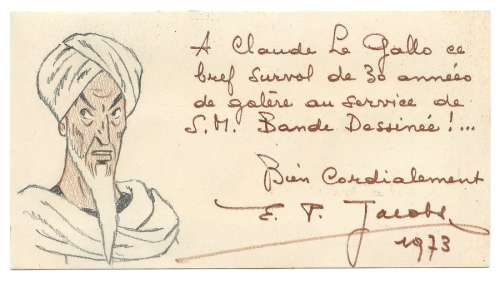 A Claude Le Gallo ce
bref survol de 30 années
de galère au service de
S.M. Bande Dessinée !...
Bien Cordialement
E. P. Jacobs
1973